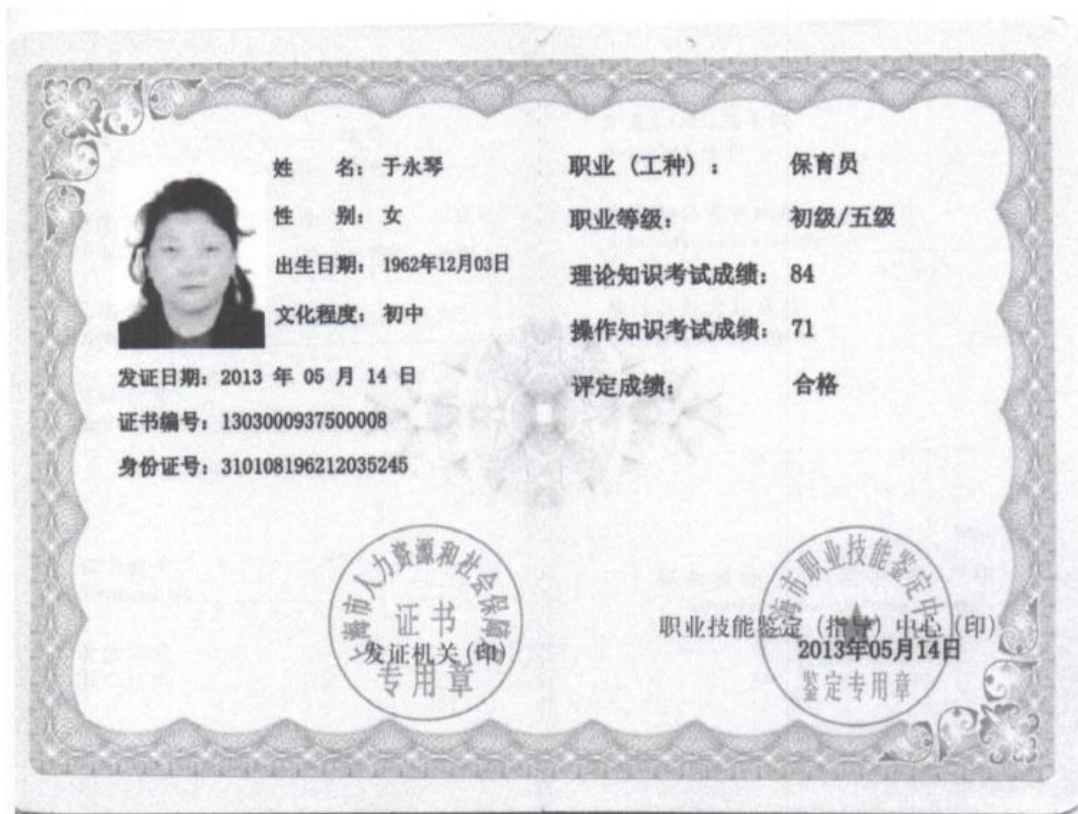 姓 名：于永琴
性 别：女
出生日期：1962年12月03日
文化程度：初中
发证日期：2013 年 05 月 14 日
证书编号：1303000937500008
身份证号：310108196212035245
职业（工种）：保育员
职业等级：初级/五级
理论知识考试成绩：84
操作知识考试成绩：71
评定成绩：合格
上海市人力资源和社会保障局
证书
专用章
发证机关(印)
上海市职业技能鉴定中心
鉴定专用章
职业技能鉴定（指导）中心（印）
2013年05月14日